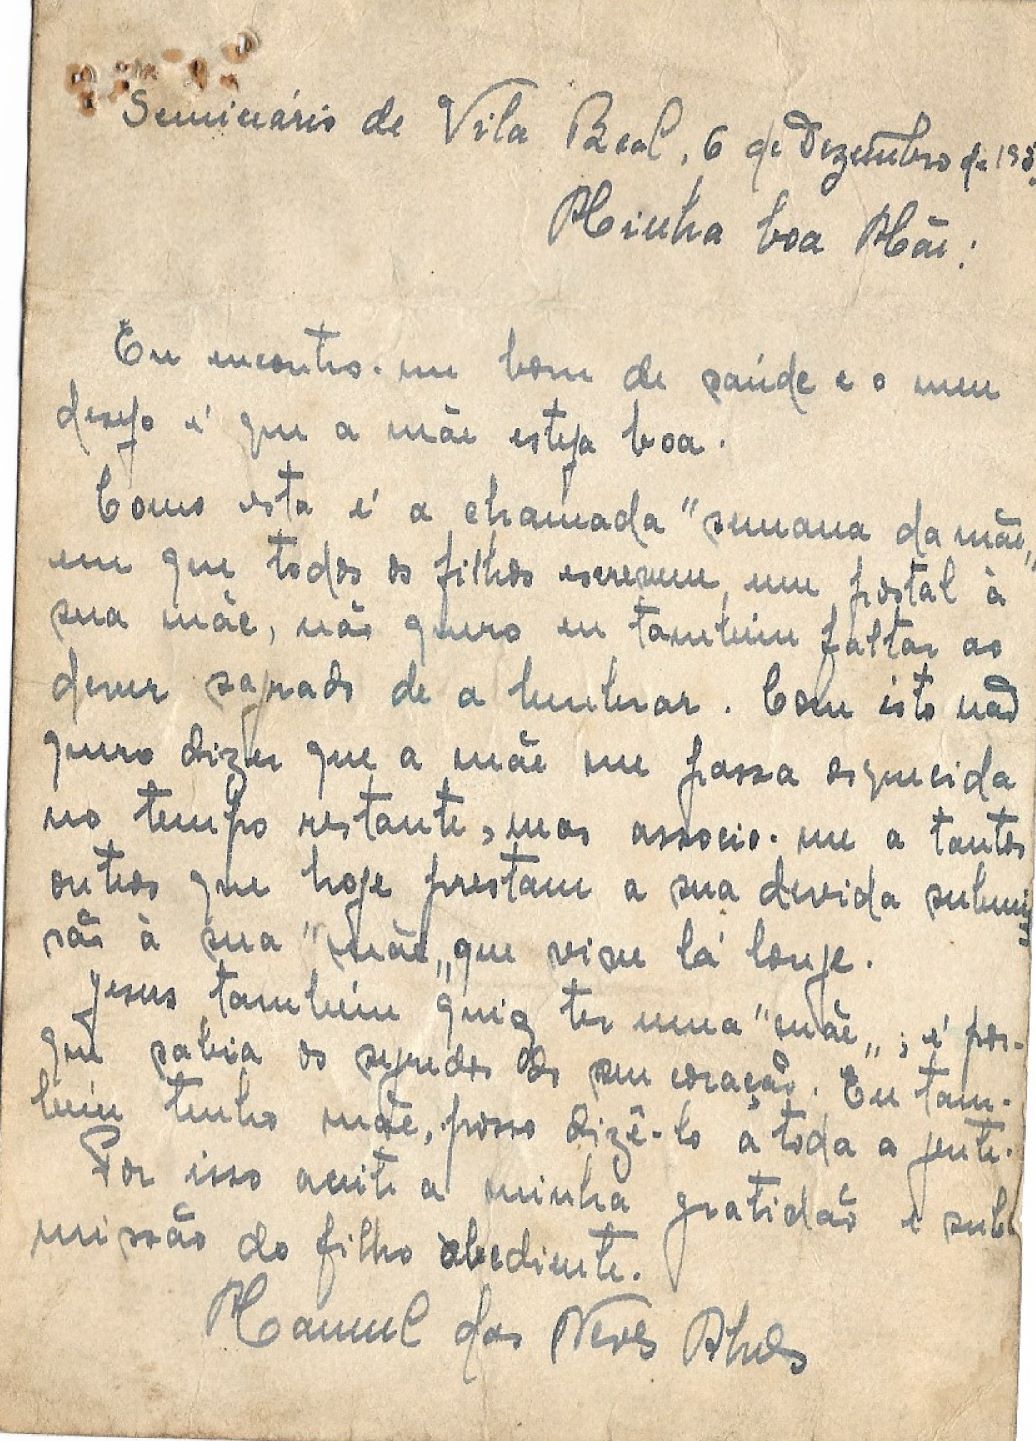 Seminário de Vila Real, 6 de Dezembro de
Minha boa Mãe:
Eu encontro-me bom de saúde e o meu
desejo é que a mãe esteja boa.
Como esta é a chamada "semana da mãe"
em que todos os filhos escrevem um postal à
sua mãe, não quero eu também faltar ao
dever sagrado de a lembrar. Com isto não
quero dizer que a mãe me passa esquecida
no tempo restante, mas associo-me a tantos
outros que hoje prestam a sua devida submis
são à sua "mãe" que vive lá longe.
Jesus também quiz ter uma "mãe"; é por-
que sabia os segredos do seu coração. Eu tam-
bém tenho mãe, posso dizê-lo a toda a gente.
Por isso aceite a minha gratidão e sub
missão do filho obediente.
Manuel das Neves Alves